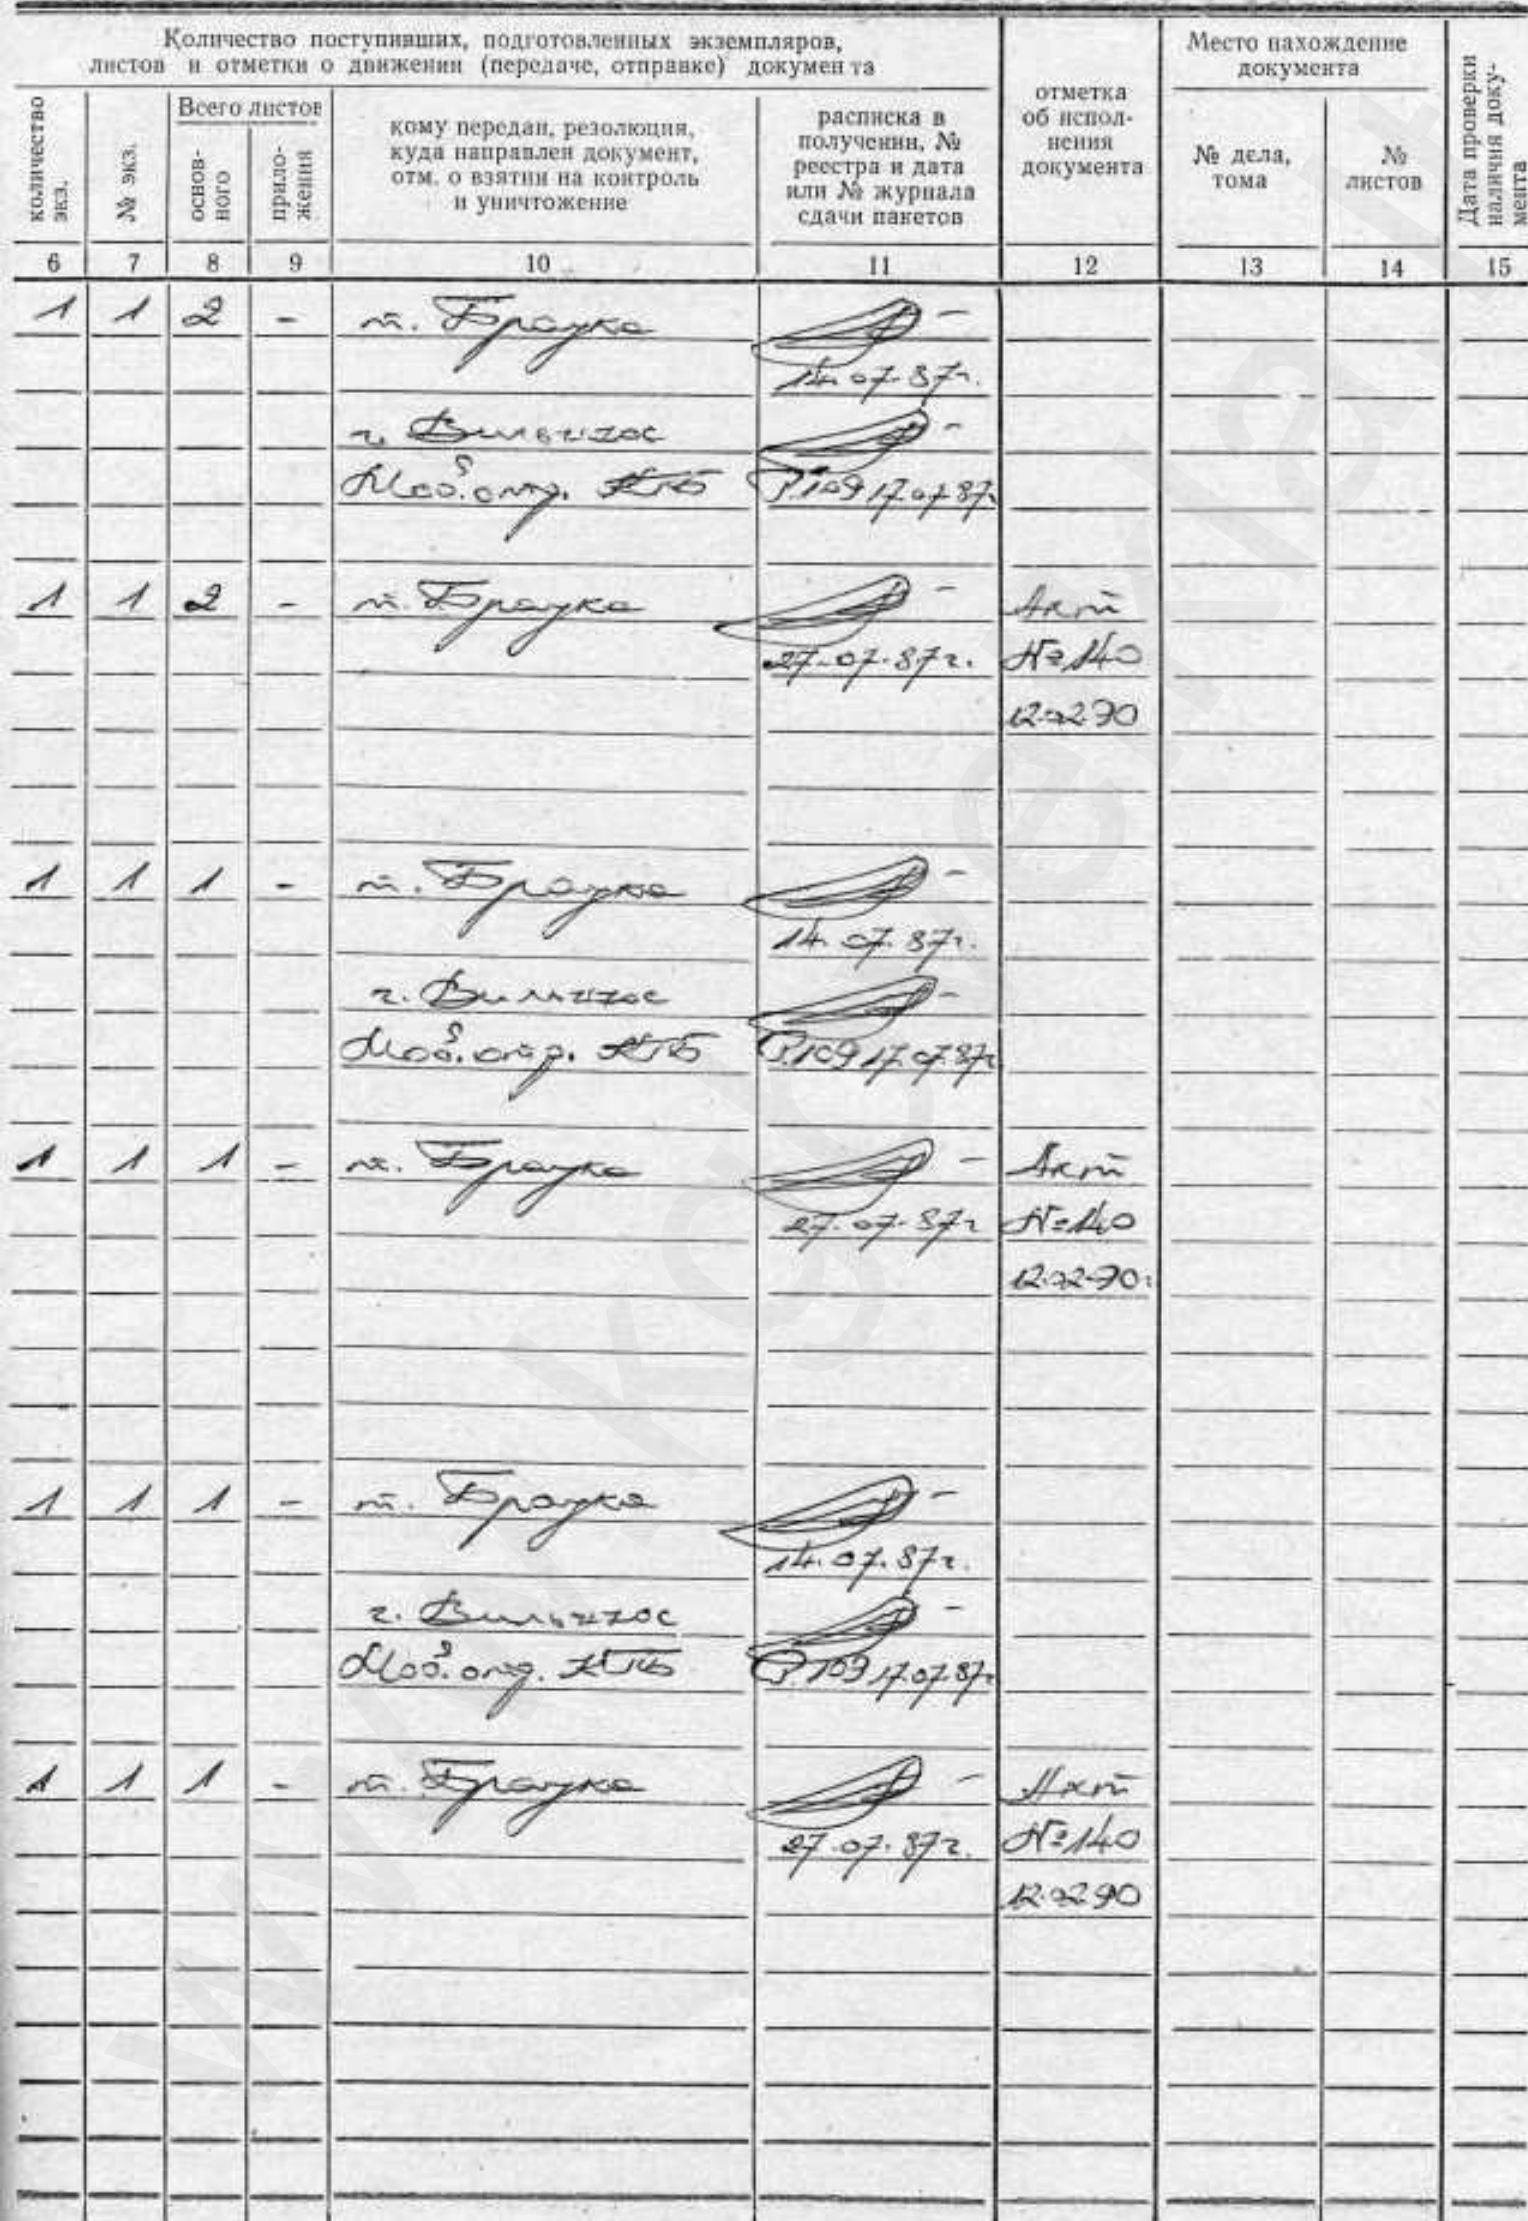 Количество поступивших, подготовленных экземпляров,
листов и отметки о движении (передаче, отправке) документа
Место нахождение
документа
Дата проверки
наличия доку-
мента
количество
экз.
№ экз.
Всего листов
основ-
ного
прило-
жения
кому передан, резолюция,
куда направлен документ,
отм. о взятии на контроль
и уничтожение
расписка в
получении, №
реестра и дата
или № журнала
сдачи пакетов
отметка
об испол-
нения
документа
№ дела,
тома
№
листов
6 7 8 9 10 11 12 13 14 15
1 1 2 - т. Браука
14.07.87г.
г. Вильнюс
Моб. отд. КГБ Р.109 17.07.87г
1 1 2 - т. Браука Акт
27.07.87г. №140
12.02.90
1 1 1 - т. Браука
14.07.87г.
г. Вильнюс
Моб. отд. КГБ Р.109 17.07.87г
1 1 1 - т. Браука Акт
27.07.87г №140
12.02.90г
1 1 1 - т. Браука
14.07.87г.
г. Вильнюс
Моб. отд. КГБ Р.109 17.07.87г
1 1 1 - т. Браука Акт
27.07.87г. №140
12.02.90